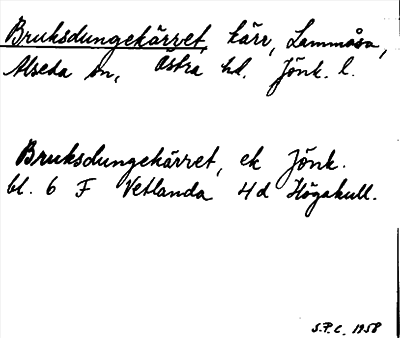 Bruksdungekärret, kärr, Lammåsa,
Alseda sn, Östra hd. Jönk. l.
Bruksdungekärret, ek Jönk.
bl. 6 F Vetlanda 4d Högakull.
S.P.C. 1958